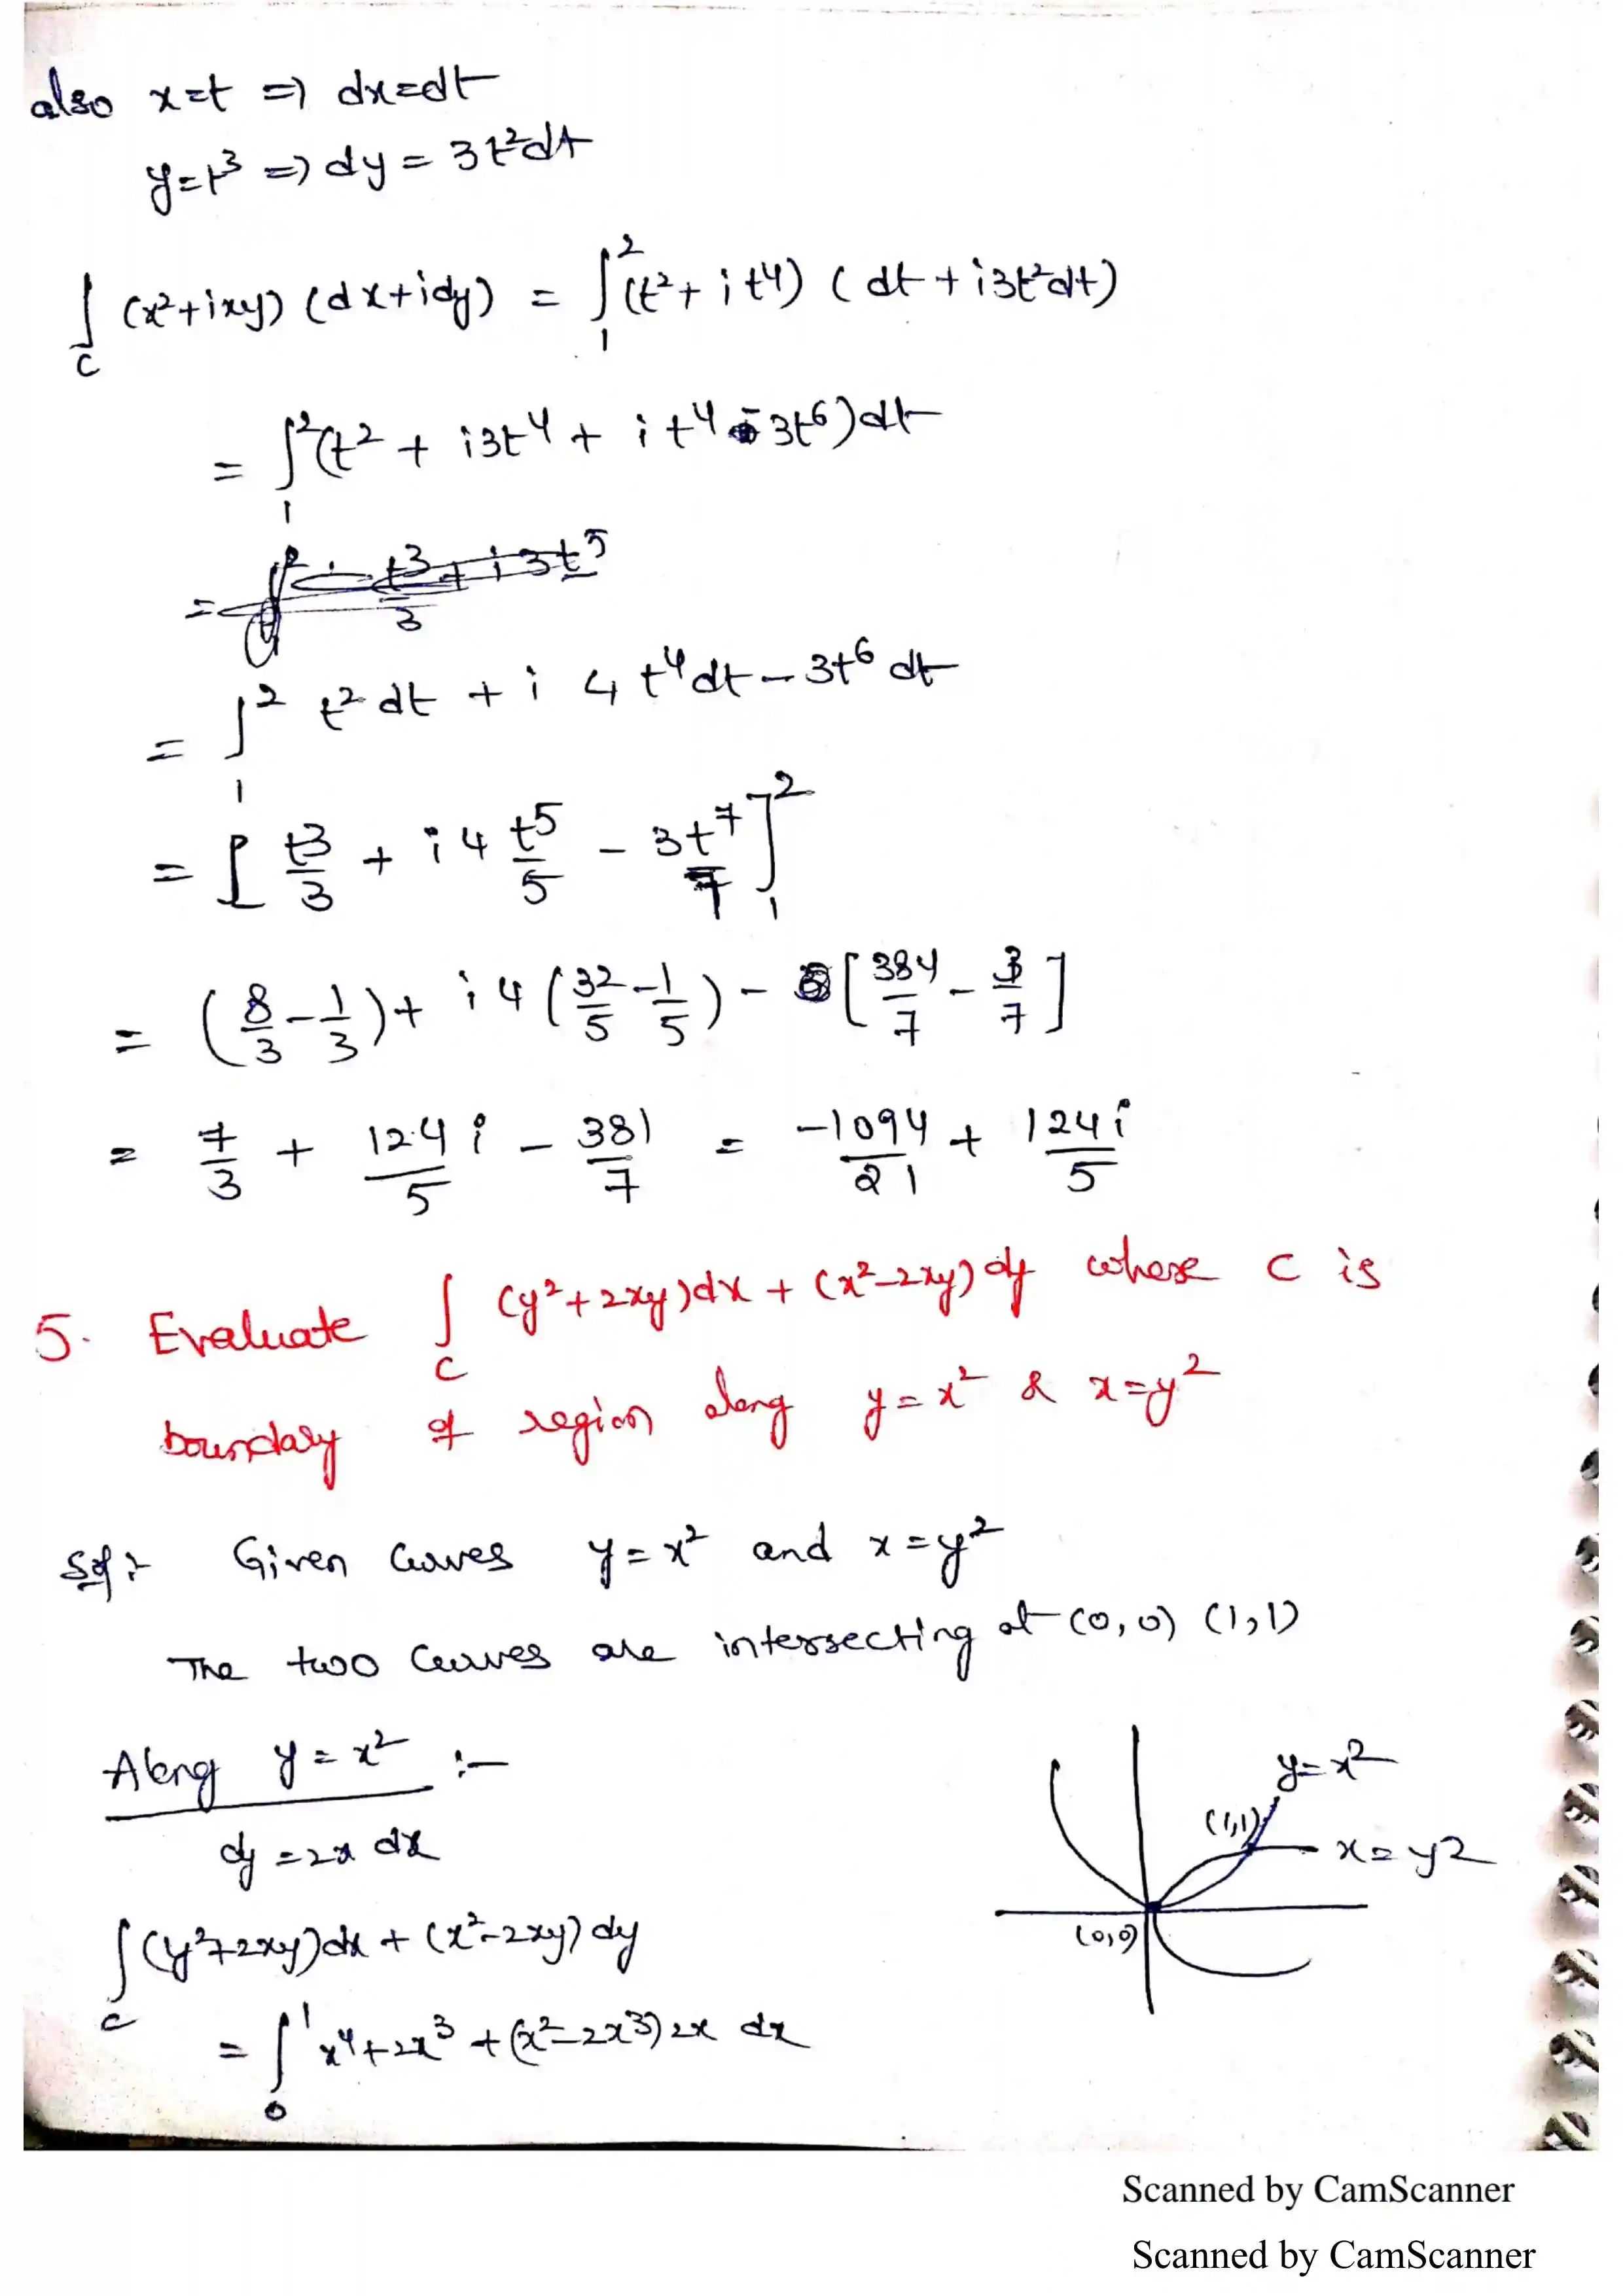 also x=t => dx=dt
y=t³ => dy = 3t²dt
∫_C (x²+ixy) (dx+idy) = ∫_1^2 (t²+ i t⁴) ( dt + i3t²dt)
= ∫_1^2 (t² + i3t⁴ + i t⁴ - 3t⁶)dt
= ∫_1^2 t² dt + i 4 t⁴dt - 3t⁶ dt
= [ t³/3 + i 4 t⁵/5 - 3t⁷/7 ]_1^2
= (8/3 - 1/3) + i 4 (32/5 - 1/5) - [384/7 - 3/7]
= 7/3 + 124/5 i - 381/7 = -1094/21 + 124i/5
5. Evaluate ∫_C (y²+2xy)dx + (x²-2xy)dy where C is
boundary of region along y=x² & x=y²
Sol :- Given Curves y=x² and x=y²
The two Curves are intersecting at (0,0) (1,1)
Along y=x² :-
dy = 2x dx
∫_C (y²+2xy)dx + (x²-2xy) dy
= ∫_0^1 x⁴+2x³ + (x²-2x³) 2x dx
y=x²
(1,1)
x=y2
(0,0)
Scanned by CamScanner
Scanned by CamScanner